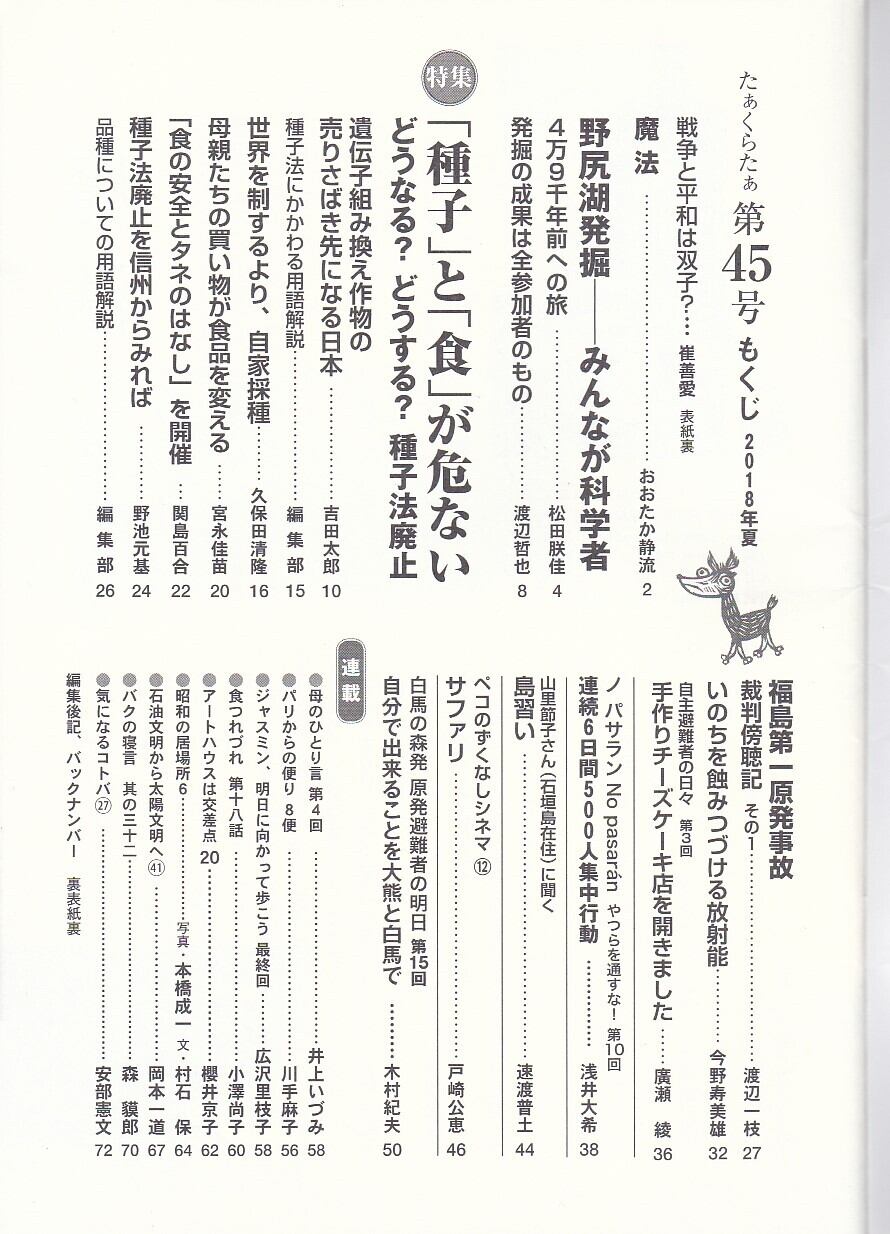 たぁくらたぁ 第45号 もくじ 2018年夏
戦争と平和は双子?… 崔善愛 表紙裏
魔法……………………おおたか静流 2
野尻湖発掘――みんなが科学者
4万9千年前への旅……………松田朕佳 4
発掘の成果は全参加者のもの………渡辺哲也 8
特集
「種子」と「食」が危ない
どうなる? どうする? 種子法廃止
遺伝子組み換え作物の
売りさばき先になる日本…………吉田太郎 10
種子法にかかわる用語解説……………編集部 15
世界を制するより、自家採種……久保田清隆 16
母親たちの買い物が食品を変える……宮永佳苗 20
「食の安全とタネのはなし」を開催…関島百合 22
種子法廃止を信州からみれば………野池元基 24
品種についての用語解説………………編集部 26
福島第一原発事故
裁判傍聴記 その1……………………渡辺一枝 27
いのちを蝕みつづける放射能………今野寿美雄 32
自主避難者の日々 第3回
手作りチーズケーキ店を開きました……廣瀬 綾 36
ノ パサラン No pasarán やつらを通すな! 第10回
連続6日間500人集中行動…………浅井大希 38
山里節子さん(石垣島在住)に聞く
島習い……………………………速渡普土 44
ペコのずくなしシネマ⑫
サファリ……………………………戸崎公恵 46
白馬の森発 原発避難者の明日 第15回
自分で出来ることを大熊と白馬で………木村紀夫 50
連載
●母のひとり言 第4回……………………井上いづみ 58
●パリからの便り 8便……………………川手麻子 56
●ジャスミン、明日に向かって歩こう 最終回……広沢里枝子 58
●食つれづれ 第十八話……………………小澤尚子 60
●アートハウスは交差点 20…………………櫻井京子 62
●昭和の居場所6……………写真・本橋成一 文・村石 保 64
●石油文明から太陽文明へ㊶…………………岡本一道 67
●バクの寝言 其の三十二……………………森 貘郎 70
●気になるコトバ㉗……………………………安部憲文 72
編集後記、バックナンバー 裏表紙裏